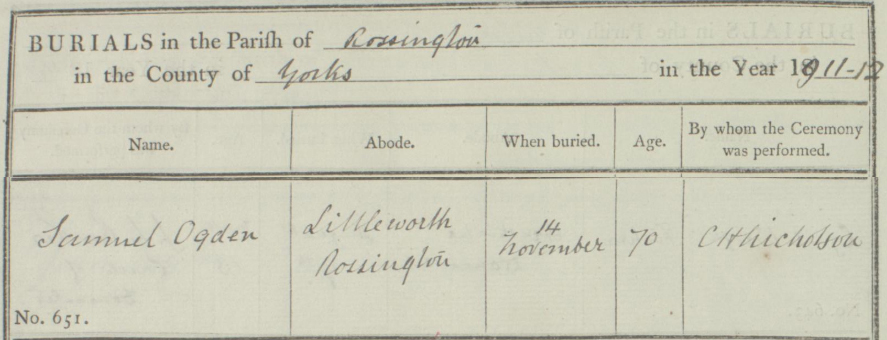 BURIALS in the Pariſh of Rossington
in the County of Yorks in the Year 1911-12
Name. Abode. When buried. Age. By whom the Ceremony was performed.
Samuel Ogden Littleworth Rossington 14 November 70 C H Nicholson
No. 651.